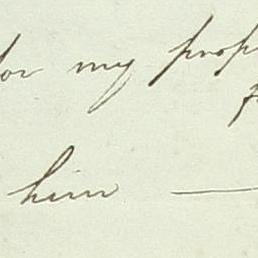 for my prop
him —